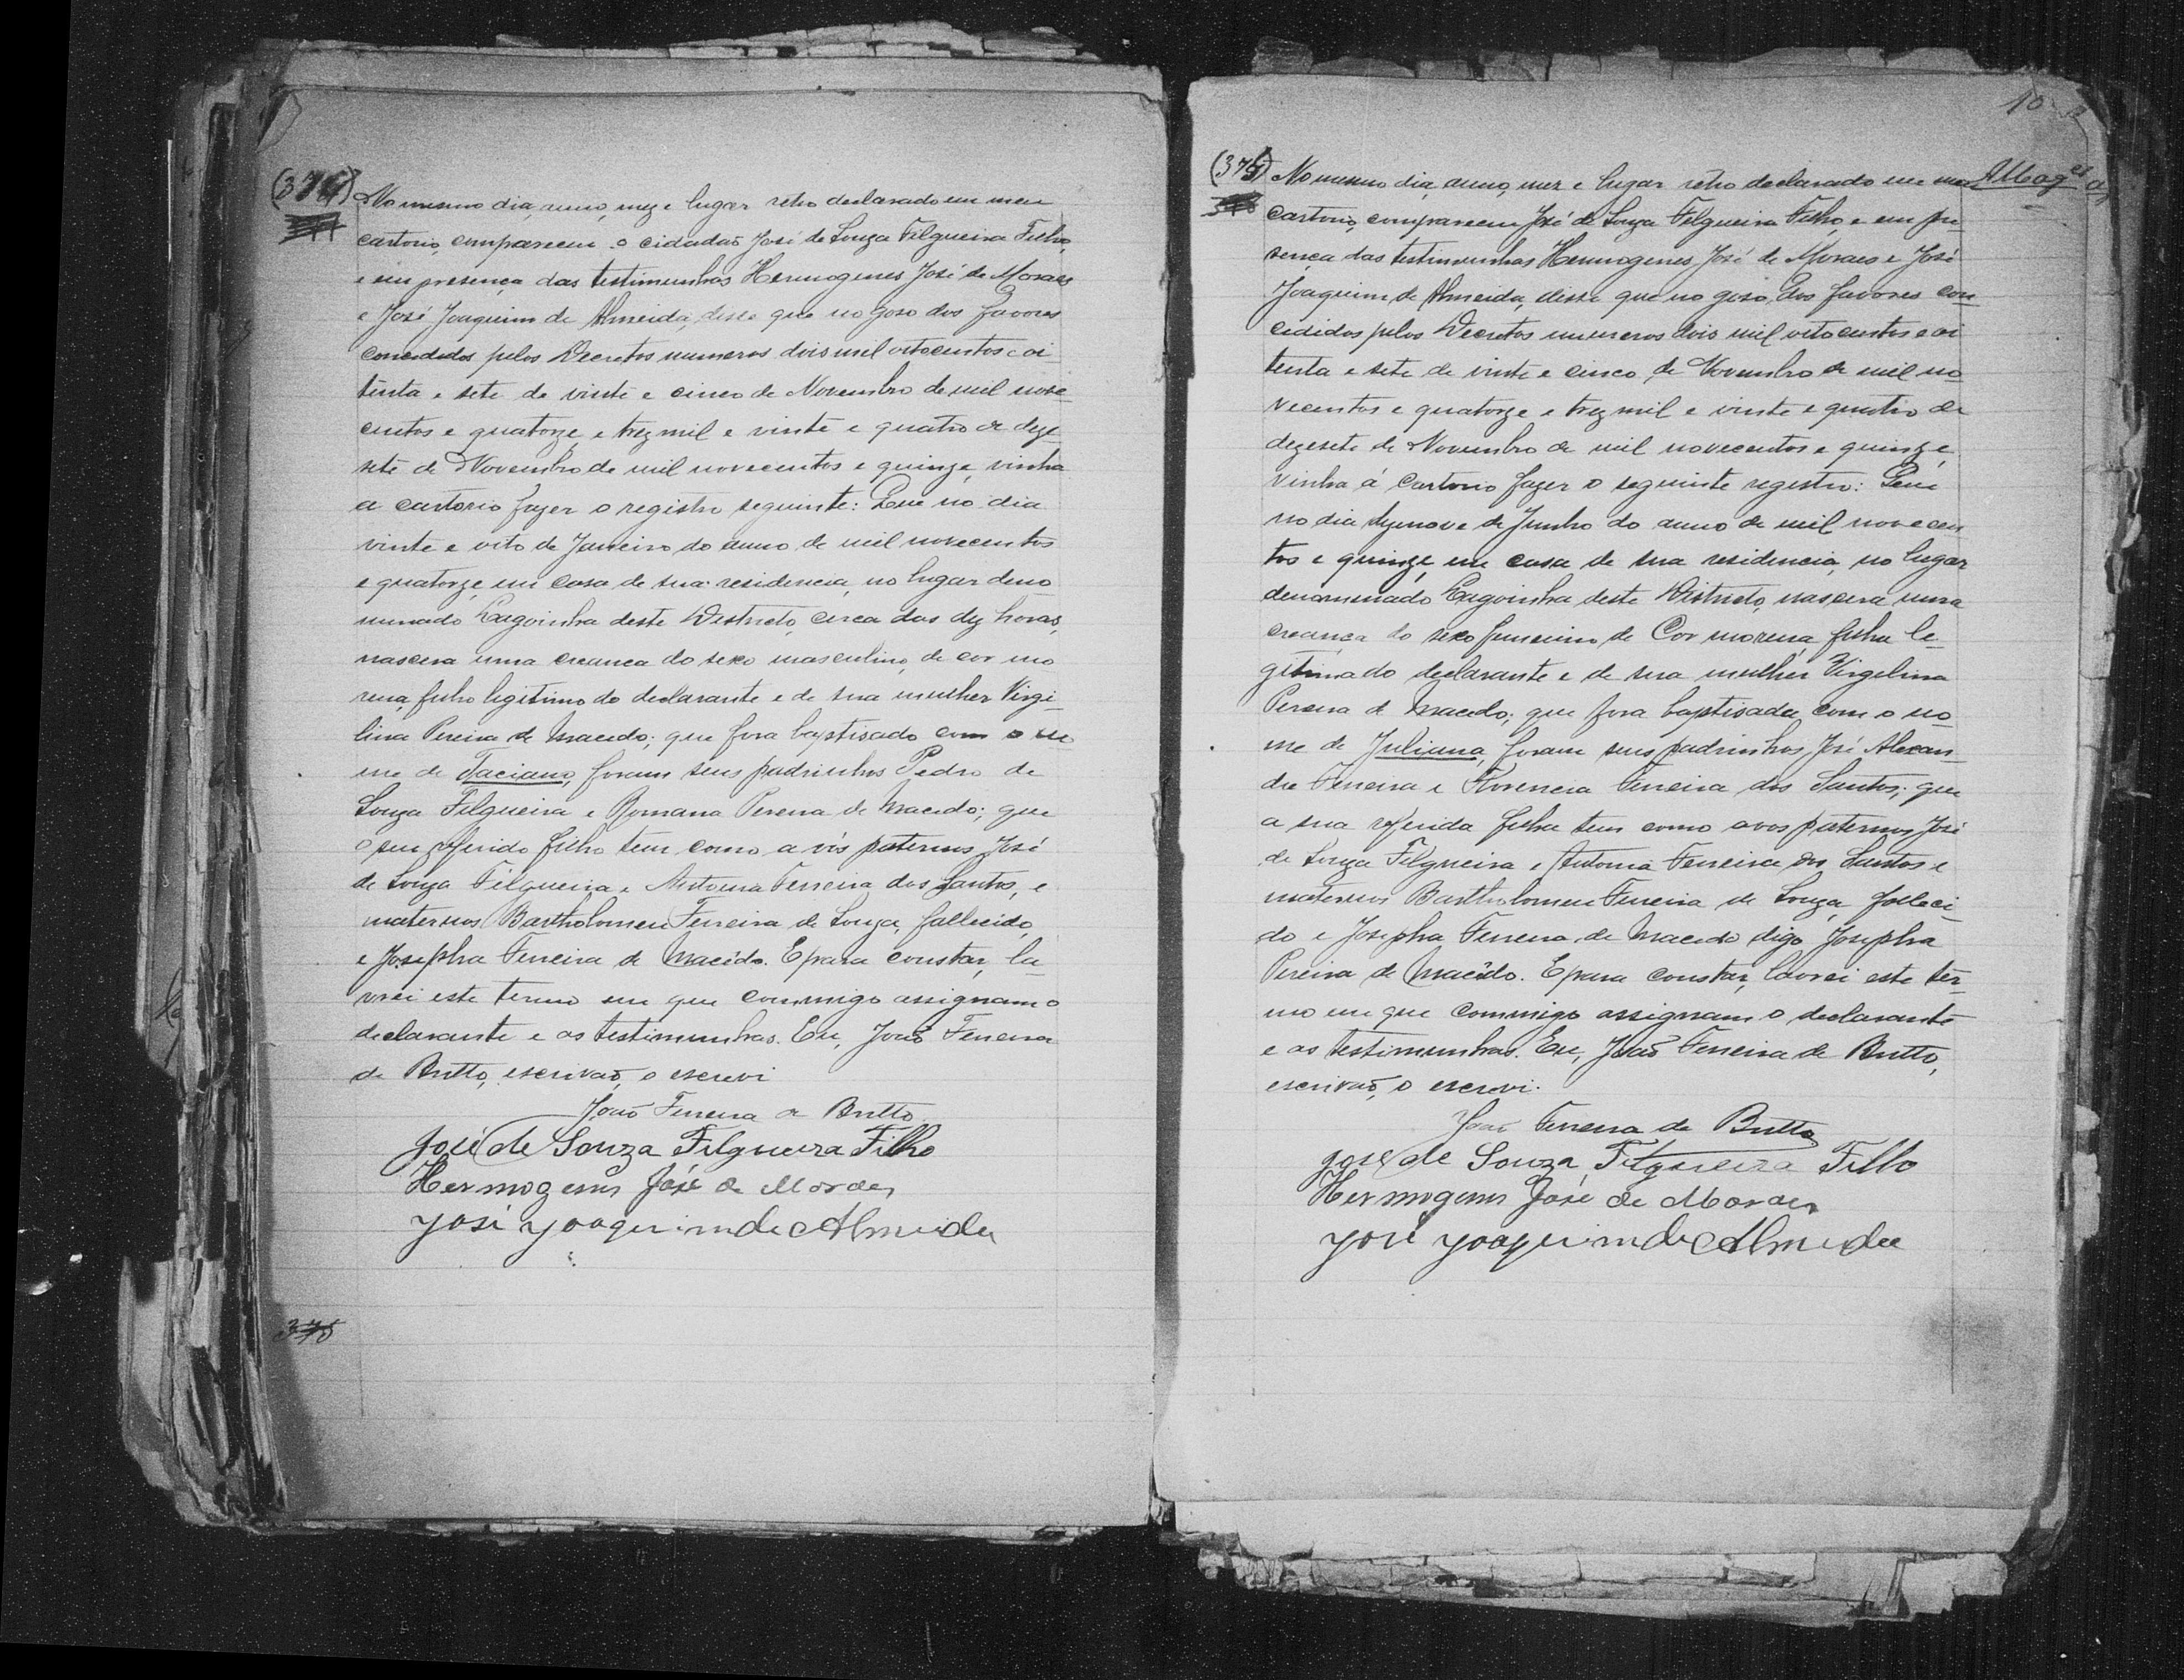 (374)
No mesmo dia, anno, mez e lugar retro declarado em meu
cartorio, compareceu o cidadão José de Souza Filgueira Filho,
e em presença das testimunhas Hermogenes José de Moraes
e José Joaquim de Almeida, disse que no goso dos favores
concedidos pelos Decretos numeros dois mil oitocentos e oi
tenta e sete de vinte e cinco de Novembro de mil nove
centos e quatorze e trez mil e vinte e quatro de deze
sete de Novembro de mil novecentos e quinze, vinha
a cartorio fazer o registro seguinte: Que no dia
vinte e oito de Janeiro do anno de mil novecentos
e quatorze, em casa de sua residencia, no lugar deno
minado Lagoinha deste Districto, cerca das dez horas,
nascera uma creança do sexo masculino, de cor mo
rena, filho legitimo do declarante e de sua mulher Virgi-
lina Pereira de Macedo; que fora baptisado com o no
me de Taciano, foram seus padrinhos Pedro de
Souza Filgueira e Romana Pereira de Macedo; que
o seu referido filho tem como a vós paternos José
de Souza Filgueira e Antonia Ferreira dos Santos, e
maternos Bartholomeu Ferreira de Souza, fallecido,
e Josepha Ferreira de Macêdo. E para constar, la-
vrei este termo em que commigo assignam o
declarante e as testimunhas. Eu, João Ferreira
de Britto, escrivão, o escrevi
João Ferreira de Britto
José de Souza Filgueira Filho
Hermogenes José de Moraes
José Joaquim de Almeida
375
10
(375)
No mesmo dia, anno, mez e lugar retro declarado em meu
cartorio, compareceu José de Souza Filgueira Filho, e em pre-
sença das testimunhas Hermogenes José de Moraes e José
Joaquim de Almeida, disse que no goso dos favores con
cedidos pelos Decretos numeros dois mil oitocentos e oi
tenta e sete de vinte e cinco de Novembro de mil no
vecentos e quatorze e trez mil e vinte e quatro de
dezesete de Novembro de mil novecentos e quinze,
vinha á cartorio fazer o seguinte registro: Que
no dia dezenove de Junho do anno de mil novecen
tos e quinze, em casa de sua residencia, no lugar
denominado Lagoinha deste Districto, nascera uma
creança do sexo feminino de Cor morena, filha le-
gitima do declarante e de sua mulher Virgelina
Pereira de Macedo; que fora baptisada com o no
me de Juliana, foram seus padrinhos José Alexan-
dre Ferreira e Florencia Ferreira dos Santos; que
a sua referida filha tem como avos paternos José
de Souza Filgueira e Antonia Ferreira dos Santos e
maternos Bartholomeu Ferreira de Souza, falleci-
do e Josepha Ferreira de Macedo digo Josepha
Pereira de Macêdo. E para constar, lavrei este ter-
mo em que commigo assignam o declarante
e as testimunhas. Eu, João Ferreira de Britto,
escrivão, o escrevi.
João Ferreira de Britto
José de Souza Filgueira Filho
Hermogenes José de Moraes
José Joaquim de Almeida